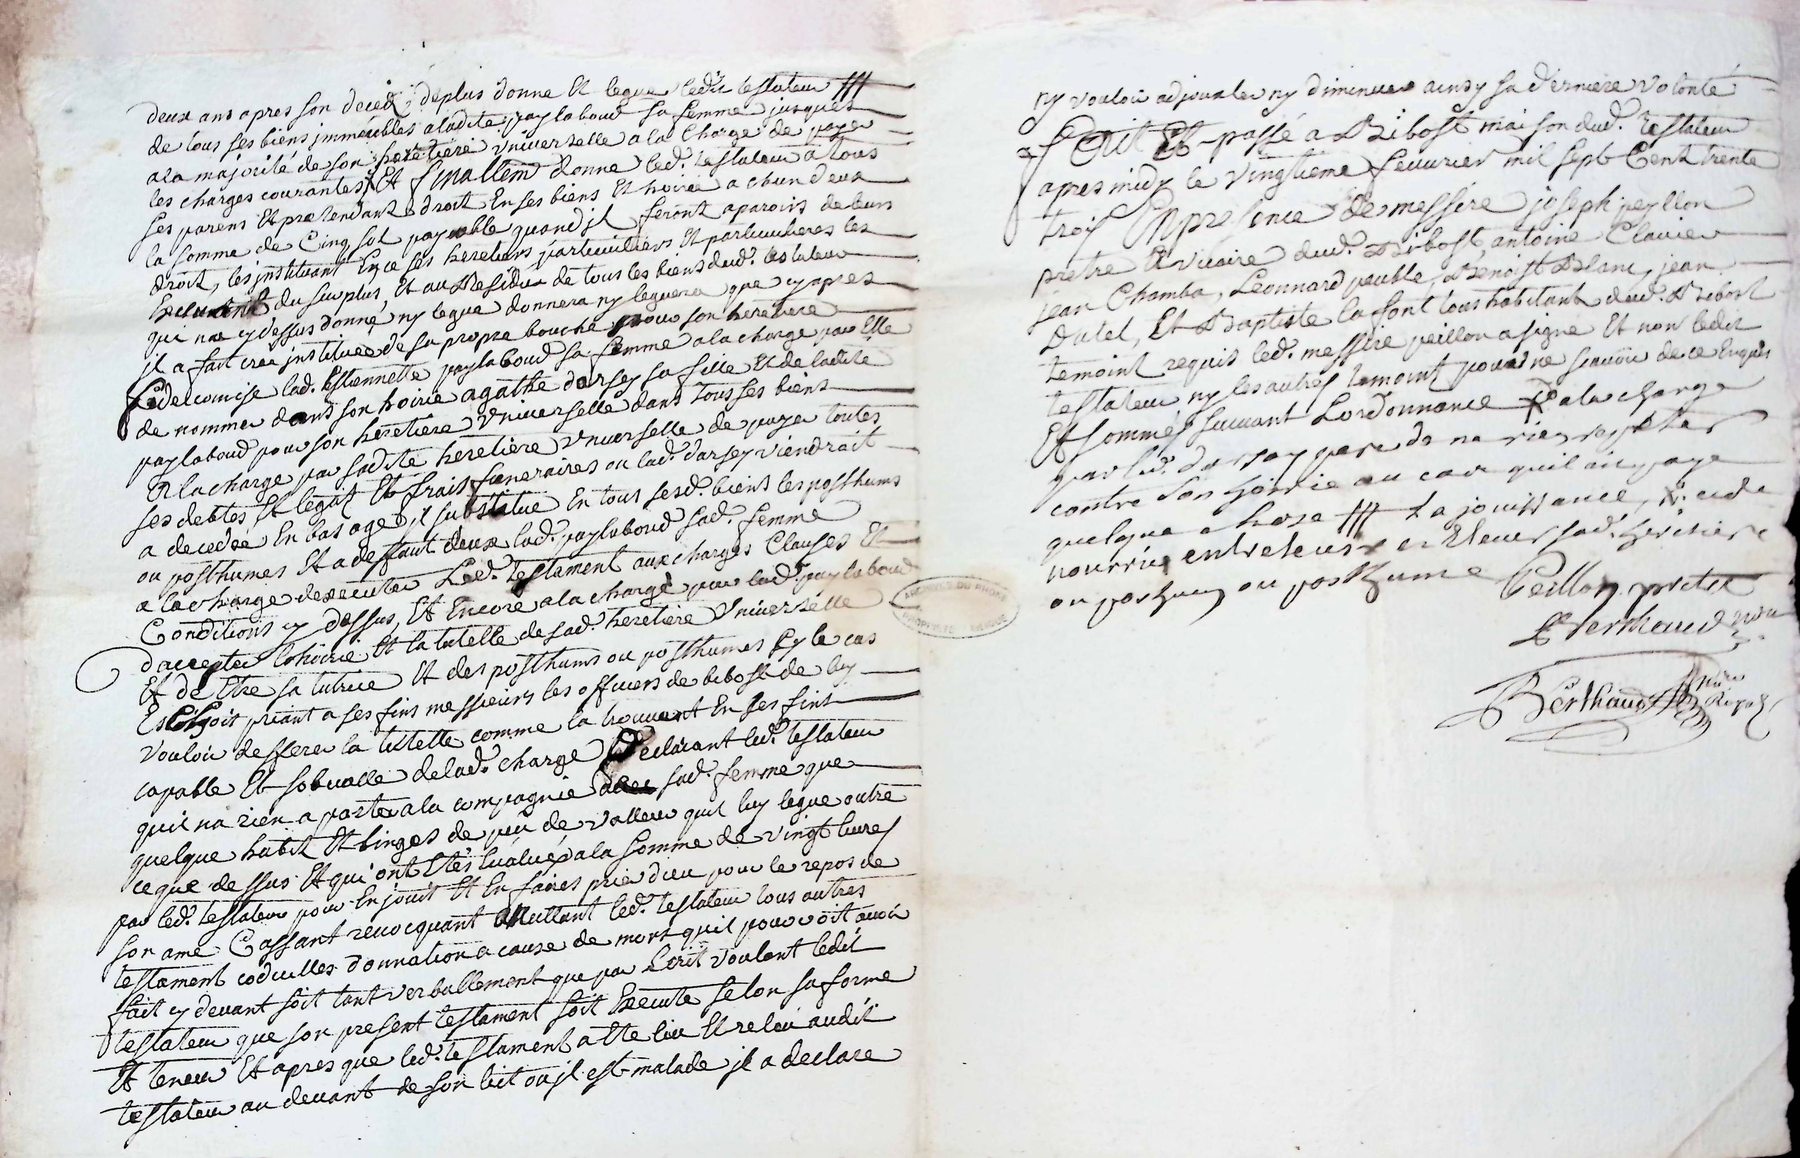 deux ans apres son decedz, deplus donne Et legue ledit testateur ///
de tous ses biens jmmeubles a ladite paylaboud sa femme jusques
a la majorité de son heretiere vniverselle a la Charge de payer
les charges courantes, Et finallem donne led. testateur a tous
ses parens Et pretendants droit En ses biens Et hoirie a chun deux
la somme de Cinq sol payable quand jl feront aparoirs de leurs
droit, les jnstituant En ce ses heretiers particulliers Et particulieres les
Excluant du surplus, Et au Residu de tous les biens dud. testateur
qui na cy dessus donné ny legue donnera ny leguera que cy apres
jl a fait cree jnstituee de sa propre bouche pour son heretiere
fideicomise lad. Estiennette paylaboud sa femme a la charge par Elle
de nommer dans son hoirie agathe darsey sa fille Et de ladite
paylaboud pour son heretiere vniverselle dans tous ses biens
En la charge par sadite heretiere vniverselle de payer toutes
ses debtes Et legat Et frais funeraires ou lad. darsey viendrait
a deceder En bas age, jl substitue En tous sesd. biens les posthums
ou posthumes Et a deffaut deux lad. paylaboud sad. femme
a la charge dexecuter Led. testament aux charges Clauses Et
Conditions cy dessus, Et Encore a la charge pour lad. paylaboud
daccepter lhoirie Et la tutelle de sad. heretiere vniverselle
Et de Etre sa tutrice Et des posthums ou posthumes sy le cas
Eschoit priant a ses fins messieurs les officiers de bibost de luy
vouloir defferer la tutelle comme la trouvant En ses fins
capable Et solvable de lad. charge Declarant led. testateur
quil na rien aporter a la compagnie avec sad. femme que
quelque habit Et linges de peu de valleur quil luy legue outre
ce que dessus Et qui ont Etés Evalués a la somme de vingt livres
par led. testateur pour En jouir Et En faires prier dieu pour le repos de
son ame Cassant revocquant annullant led. testateur tous autres
testament codicilles donnation a cause de mort quil pourroit avoir
fait cy devant soit tant verballement que par Ecrit voulant ledit
testateur que son present testament soit Execute selon sa forme
Et teneur Et apres que led. testament a Ete leu Et releu audit
testateur au devant de son lit ou jl est malade jl a declare
ny vouloir adjouster ny diminuer ainsy sa derniere volonté
fait Et passé a Bibost maison dud. testateur
apres midy le vingtieme fevurier mil sept Cent trente
trois En presence de messire joseph peyllon
pretre Et vicaire dud. Bibost, antoine Clavier
jean Chamba, Leonnard peuble, Benoist Blanc, jean
Datel, Et Baptiste lafont tous habitant dud. Bibost
temoint requis led. messire peillon a signé Et non ledit
testateur ny les autres temoint pour ne scavoir de ce Enquis
Et sommés suivant Lordonnance a la charge
par lad. darsey pere de ne rien repeter
contre son hoirie au cas quil ait paye
quelque chose /// la jouissance,
nourrir entretenir et Elever sad. heritiere
ou posthum ou posthume Peillon pretre
Berthaud
Berthaud no.re Royal
ARCHIVES DU RHONE
PROPRIETE PUBLIQUE